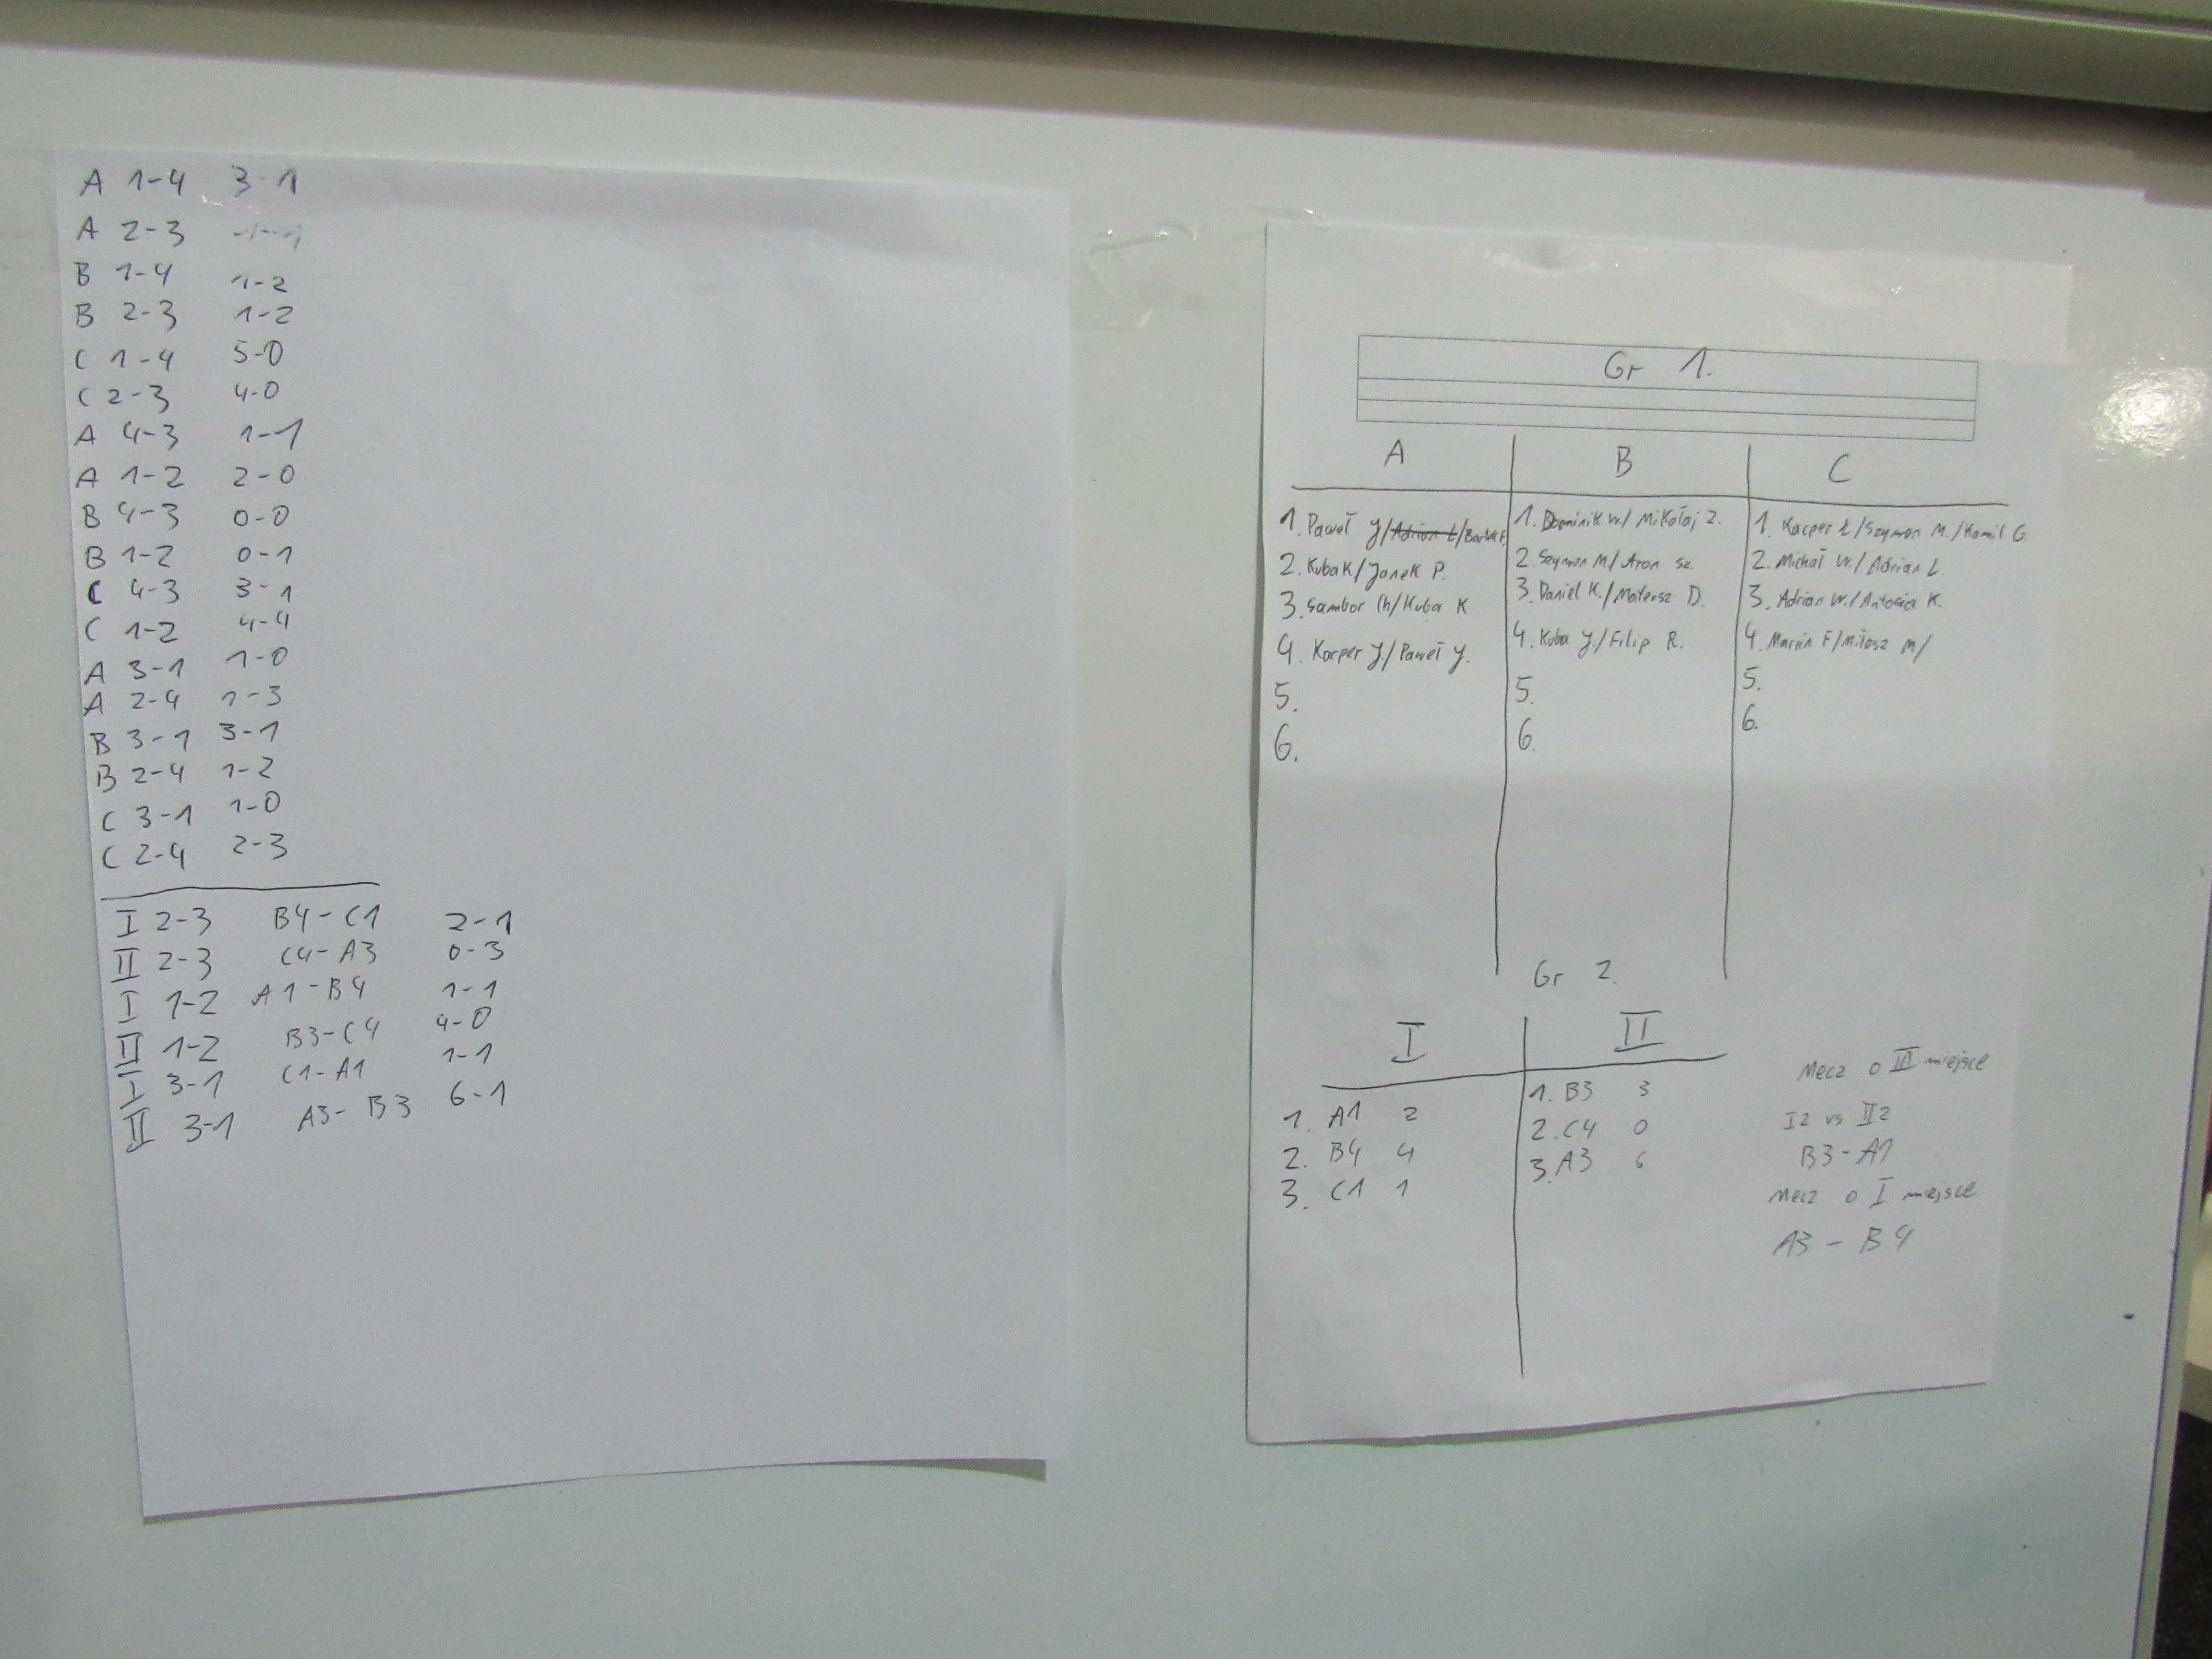 A 1-4 3-1
A 2-3 1-1
B 1-4 1-2
B 2-3 1-2
C 1-4 5-0
C 2-3 4-0
A 4-3 1-1
A 1-2 2-0
B 4-3 0-0
B 1-2 0-1
C 4-3 3-1
C 1-2 4-4
A 3-1 1-0
A 2-4 1-3
B 3-1 3-1
B 2-4 1-2
C 3-1 1-0
C 2-4 2-3
I 2-3 B4-C1 2-1
II 2-3 C4-A3 0-3
I 1-2 A1-B4 1-1
II 1-2 B3-C4 4-0
I 3-1 C1-A1 1-1
II 3-1 A3-B3 6-1
Gr 1.
A B C
1. Paweł J/Adrian Ł/
2. Kuba K/Janek P.
3. Sambor Ch/Kuba K
4. Kacper J./Paweł J.
5.
6.
1. Dominik W./Mikołaj Z.
2. Szymon M/Aron Sz.
3. Daniel K./Mateusz D.
4. Kuba J./Filip R.
5.
6.
1. Kacper Ł/Szymon M./Kamil G.
2. Michał W./Adrian Ł.
3. Adrian W./Antosia K.
4. Marcin F/Miłosz M/
5.
6.
Gr 2.
I II
1. A1 2
2. B4 4
3. C1 1
1. B3 3
2. C4 0
3. A3 6
Mecz o III miejsce
I2 vs II2
B3-A1
Mecz o I miejsce
A3 - B4